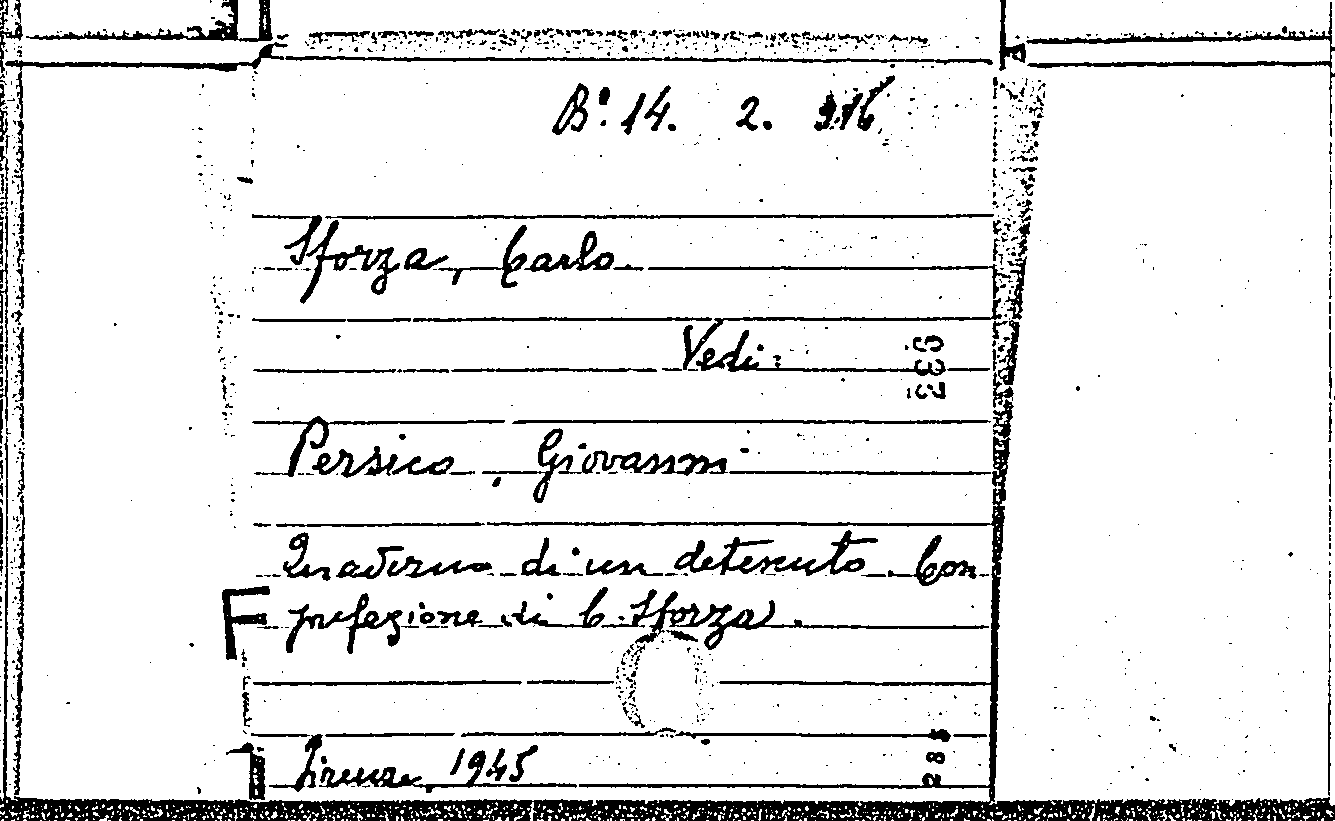 Bº. 14. 2. 916
Sforza, Carlo.
Vedi:
933
Persico, Giovanni
Quaderno di un detenuto. Con
F prefazione di C. Sforza.
Firenze, 1945
285